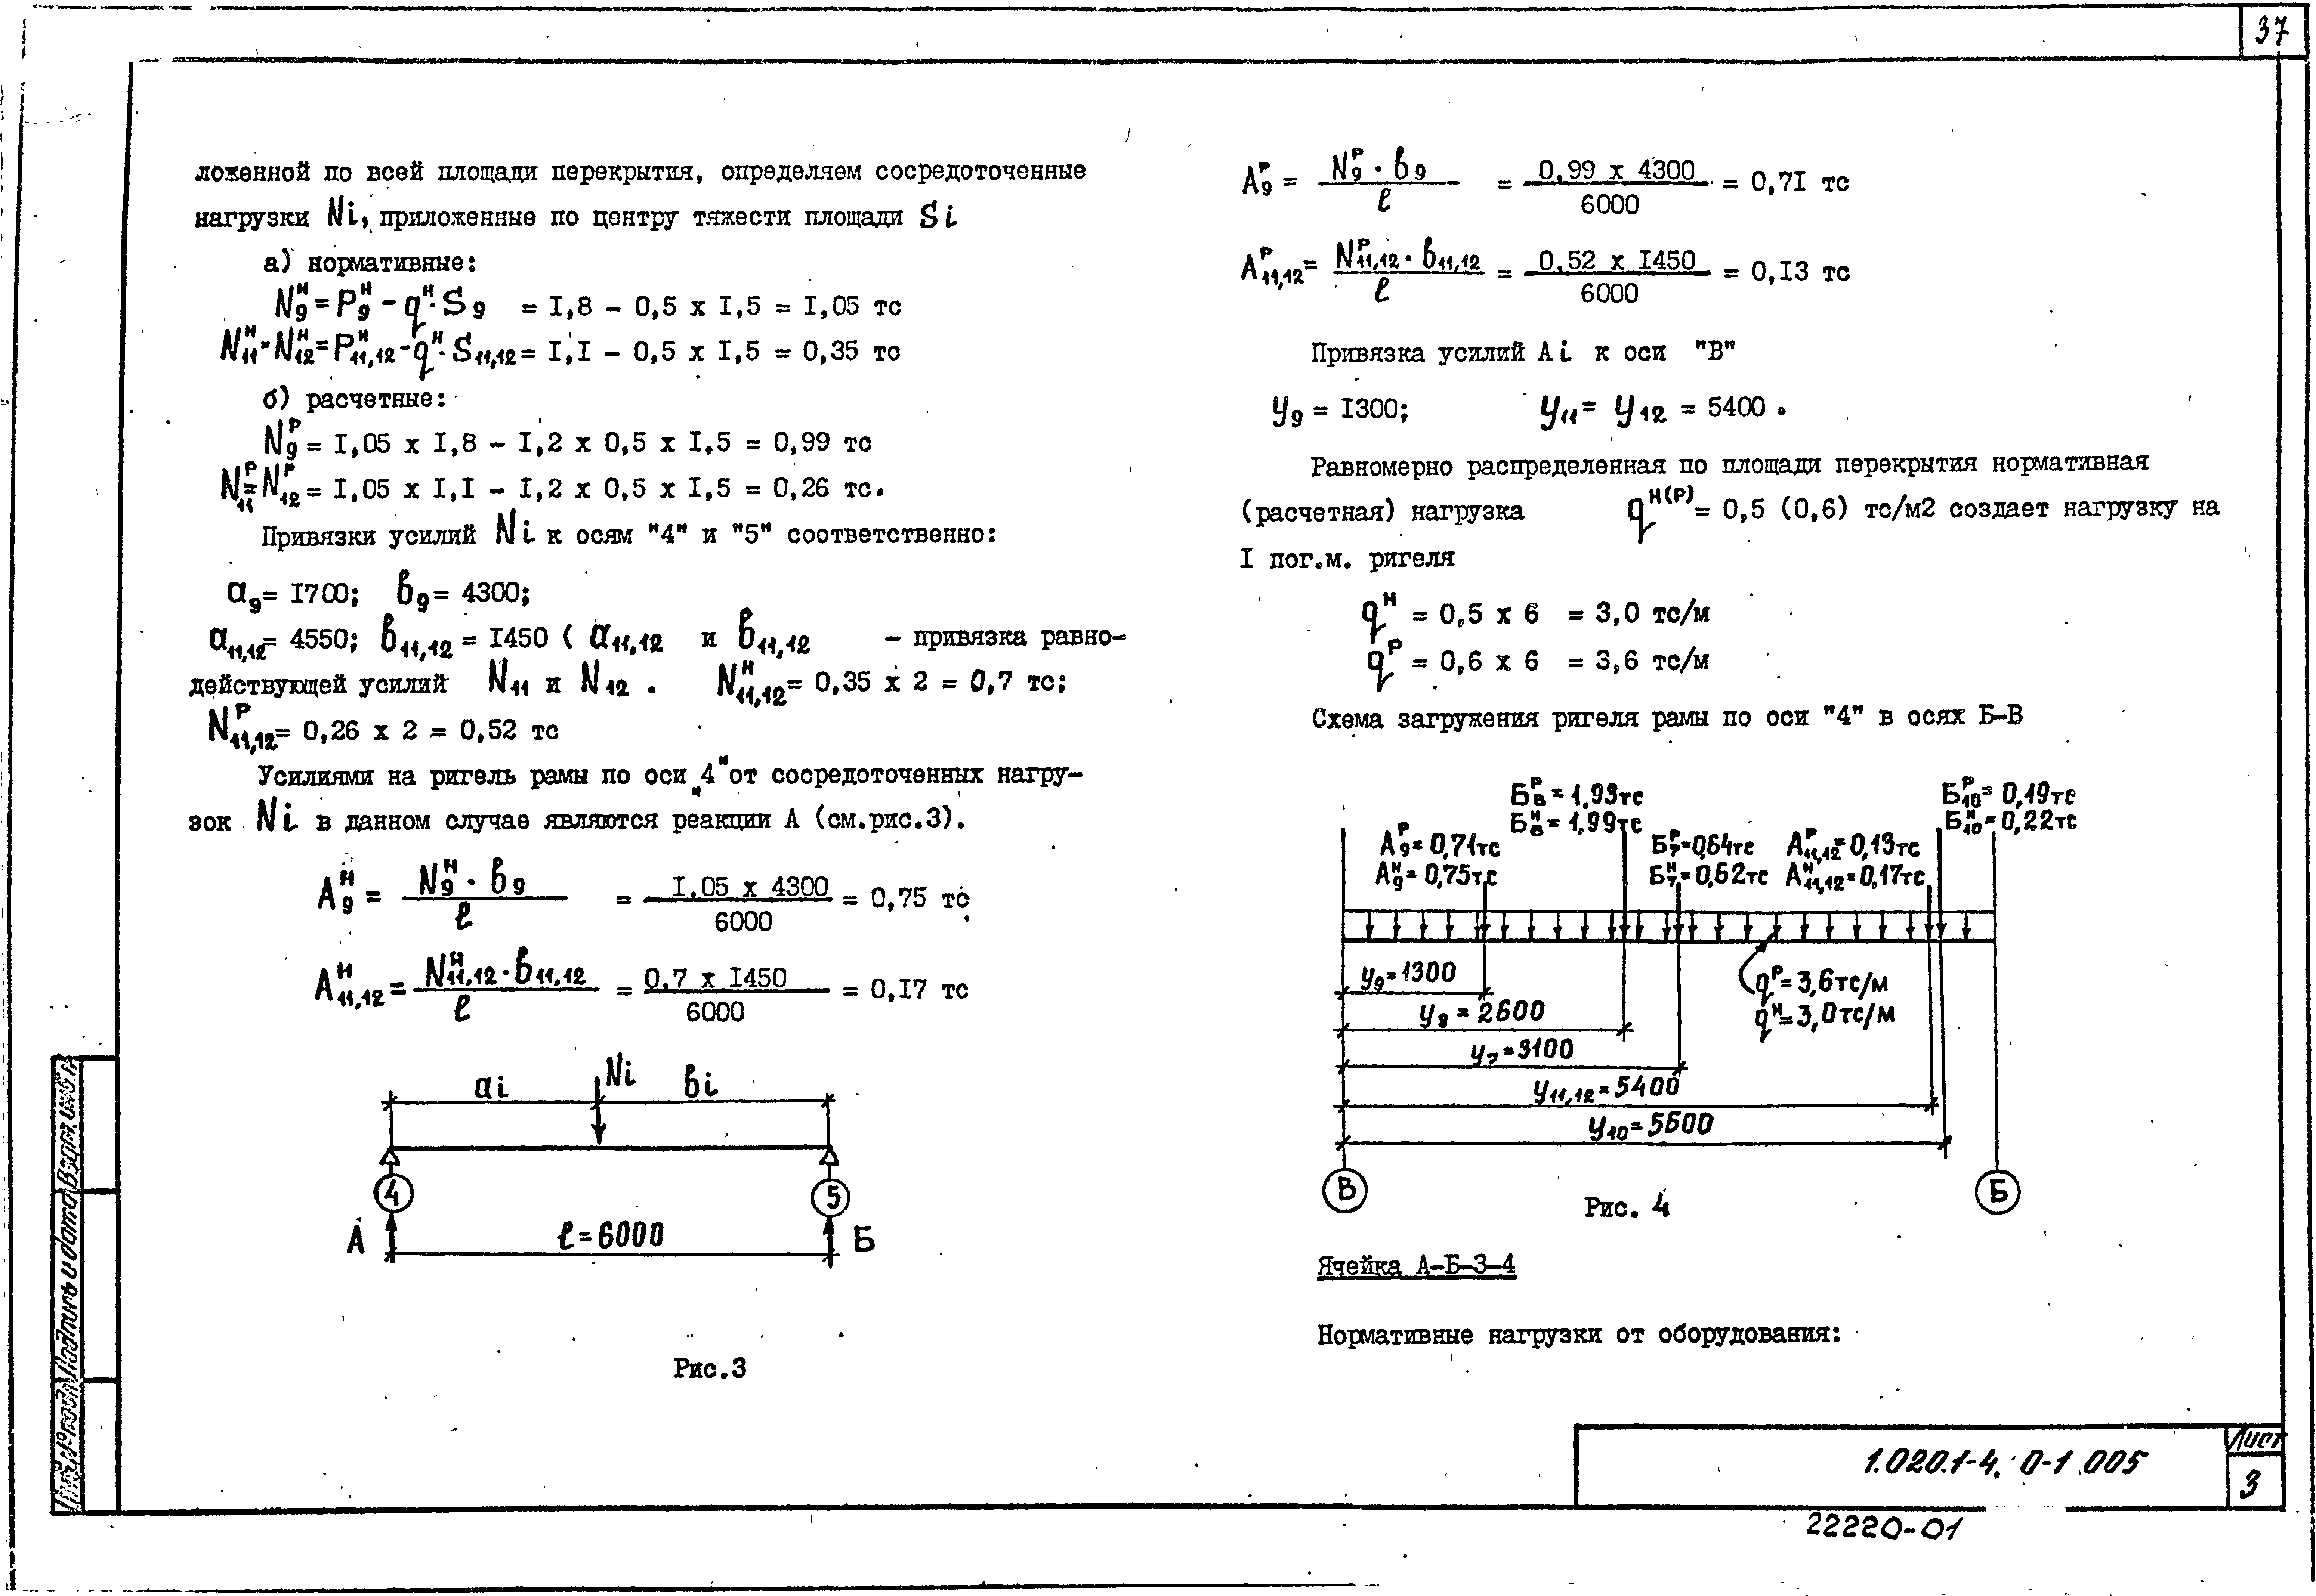 37
ложенной по всей площади перекрытия, определяем сосредоточенные
нагрузки Ni, приложенные по центру тяжести площади Si
а) нормативные:
N₉ᴴ = P₉ᴴ - qᴴ · S₉ = I,8 - 0,5 x I,5 = I,05 тс
N₁₁ᴴ = N₁₂ᴴ = P₁₁,₁₂ᴴ - qᴴ · S₁₁,₁₂ = I,I - 0,5 x I,5 = 0,35 тс
б) расчетные:
N₉ᴾ = I,05 x I,8 - I,2 x 0,5 x I,5 = 0,99 тс
N₁₁ᴾ = N₁₂ᴾ = I,05 x I,I - I,2 x 0,5 x I,5 = 0,26 тс.
Привязки усилий Ni к осям "4" и "5" соответственно:
a₉ = I700; в₉ = 4300;
a₁₁,₁₂ = 4550; в₁₁,₁₂ = I450 ( a₁₁,₁₂ и в₁₁,₁₂ - привязка равно-
действующей усилий N₁₁ и N₁₂ . N₁₁,₁₂ᴴ = 0,35 x 2 = 0,7 тс;
N₁₁,₁₂ᴾ = 0,26 x 2 = 0,52 тс
Усилиями на ригель рамы по оси "4" от сосредоточенных нагру-
зок Ni в данном случае являются реакции А (см.рис.3).
A₉ᴴ = N₉ᴴ · в₉ / ℓ = I,05 x 4300 / 6000 = 0,75 тс
A₁₁,₁₂ᴴ = N₁₁,₁₂ᴴ · в₁₁,₁₂ / ℓ = 0,7 x I450 / 6000 = 0,I7 тс
ai Ni вi
4 5
А ℓ = 6000 Б
Рис.3
A₉ᴾ = N₉ᴾ · в₉ / ℓ = 0,99 x 4300 / 6000 = 0,7I тс
A₁₁,₁₂ᴾ = N₁₁,₁₂ᴾ · в₁₁,₁₂ / ℓ = 0,52 x I450 / 6000 = 0,I3 тс
Привязка усилий Ai к оси "В"
y₉ = I300; y₁₁ = y₁₂ = 5400 .
Равномерно распределенная по площади перекрытия нормативная
(расчетная) нагрузка qᴴ⁽ᴾ⁾ = 0,5 (0,6) тс/м2 создает нагрузку на
I пог.м. ригеля
qᴴ = 0,5 x 6 = 3,0 тс/м
qᴾ = 0,6 x 6 = 3,6 тс/м
Схема загружения ригеля рамы по оси "4" в осях Б-В
Б₈ᴾ = 1,93тс
Б₈ᴴ = 1,99тс
Б₁₀ᴾ = 0,19тс
Б₁₀ᴴ = 0,22тс
A₉ᴾ = 0,71тс
A₉ᴴ = 0,75тс
Б₇ᴾ = 0,64тс
Б₇ᴴ = 0,62тс
A₁₁,₁₂ᴾ = 0,13тс
A₁₁,₁₂ᴴ = 0,17тс
y₉ = 1300
y₈ = 2600
y₇ = 3100
y₁₁,₁₂ = 5400
y₁₀ = 5500
qᴾ = 3,6тс/м
qᴴ = 3,0тс/м
В
Б
Рис. 4
Ячейка А-Б-3-4
Нормативные нагрузки от оборудования:
Инв.№ подл. Подпись и дата Взам. инв.№
1.020.1-4. 0-1 005
Лист
3
22220-01